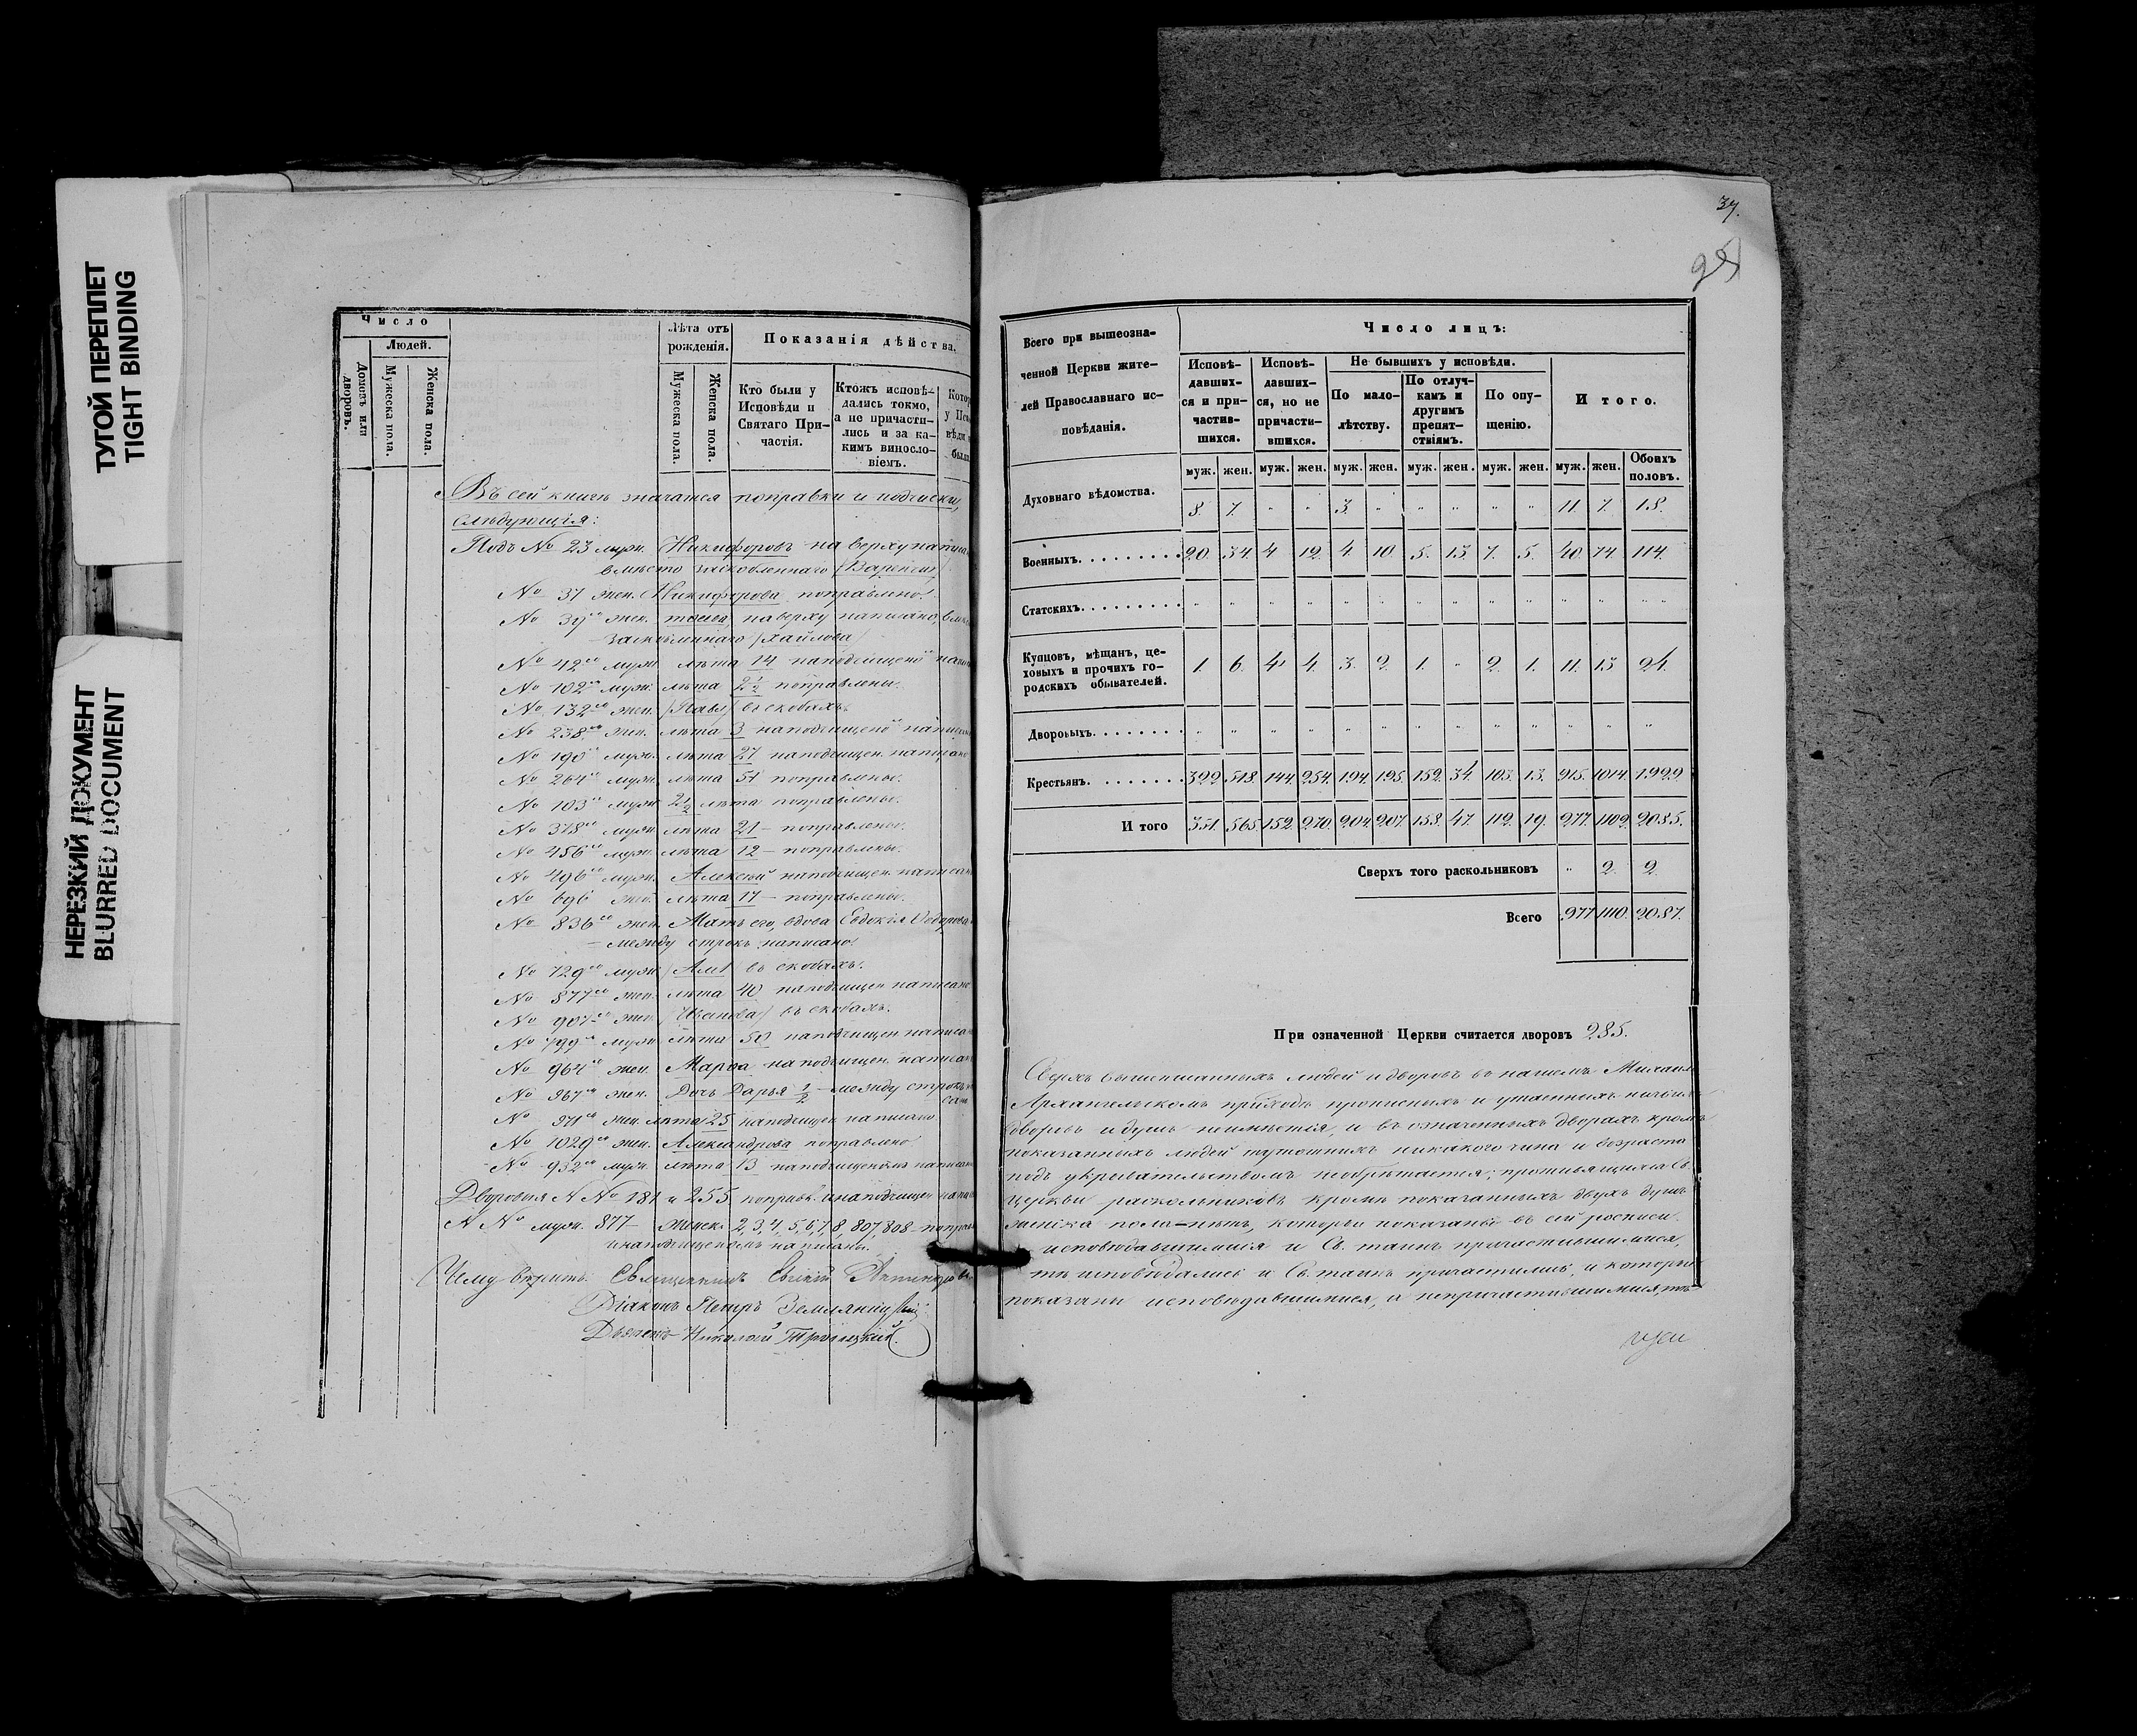 ТУГОЙ ПЕРЕПЛЕТ
TIGHT BINDING
НЕРЕЗКИЙ ДОКУМЕНТ
BLURRED DOCUMENT
Число
Людей.
Домовъ или дворовъ.
Мужеска пола.
Женска пола.
Лѣта отъ рожденія.
Мужеска пола.
Женска пола.
Показанія дѣйства.
Кто были у Исповѣди и Святаго Причастія.
Ктожъ исповѣдались токмо, а не причастились и за какимъ винословіемъ.
Въ сей книгѣ значатся поправки и подчистки,
слѣдующія:
Подъ № 23 муж. Никифоровъ на верху
вмѣсто
№ 37 жен. Никифорова поправлено.
№ 39 жен. на верху написано,
№ 42 муж. лѣта 14 наподчищенo
№ 102 муж. лѣта 2 1/2 поправлены.
№ 132 жен. въ скобахъ.
№ 238 жен. лѣта 3 наподчищено
№ 190 муж. лѣта 27 наподчищен. написано
№ 264 муж. лѣта 51 поправлены.
№ 103 муж. 2 1/2 лѣта поправлены.
№ 378 муж. лѣта 21 – поправлены.
№ 456 муж. лѣта 12 – поправлены.
№ 496 муж. Алексѣй наподчищен. написано
№ 696 лѣта 17 – поправлены.
№ 836 жен. Мать его, вдова Евдокія
– между строкъ написано.
№ 729 муж. въ скобахъ.
№ 877 жен. лѣта 40 наподчищен написано
№ 907 жен. въ скобахъ.
№ 799 муж. лѣта 50 наподчищен написано
№ 964 жен. Марѳа наподчищен. написано
№ 967 жен. Дочь Дарья 1/2 – между строкъ
№ 971 жен. лѣта 25 наподчищен написано
№ 1029 жен. Александрова поправлено
№ 932 муж. лѣта 13 наподчищеномъ
Дворовыя № № 181 и 255 поправл. и наподчищен
№ № муж. 877 – женск. 2, 3, 4, 5, 6, 7, 8, 807, 808 –
и наподчищеномъ написаны.
Чему вѣрить. Священникъ
Діаконъ Петръ
Дьячекъ Николай Троицкій.
37.
Всего при вышеозначенной Церкви жителей Православнаго исповѣданія.
Число лицъ:
Исповѣдавшихся и причастившихся.
Исповѣдавшихся, но не причастившихся.
Не бывшихъ у исповѣди.
По малолѣтству.
По отлучкамъ и другимъ препятствіямъ.
По опущенію.
Итого.
муж. жен. муж. жен. муж. жен. муж. жен. муж. жен. муж. жен. Обоихъ половъ.
Духовнаго вѣдомства. 8. 7. " " 3. " " " " " 11. 7. 18.
Военныхъ. 20. 34. 4. 12. 4. 10. 5. 13. 7. 5. 40. 74. 114.
Статскихъ. " " " " " " " " " " " " "
Купцовъ, мѣщанъ, цеховыхъ и прочихъ городскихъ обывателей. 1. 6. 4. 4. 3. 2. 1. " 2. 1. 11. 13 24.
Дворовыхъ. " " " " " " " " " " " " "
Крестьянъ. 322. 518. 144. 254. 194. 195. 152. 34. 103. 13. 915. 1014. 1929.
Итого 351. 565. 152. 270. 204. 207. 158. 47. 112. 19. 977. 1109. 2085.
Сверхъ того раскольниковъ " 2. 2.
Всего 977. 1110. 2087.
При означенной Церкви считается дворовъ 285.
Сверхъ вышеписанныхъ людей и дворовъ въ нашемъ Михаило
Архангельскомъ приходѣ прописныхъ и утаенныхъ
дворовъ и душъ неимѣется, и въ означенныхъ дворахъ кромѣ
показанныхъ людей никакого чина и возраста
подъ укрывательствомъ необрѣтается; противящихся Св.
Церкви раскольниковъ кромѣ показанныхъ двухъ душъ
женска пола – нѣтъ, которые показаны въ сей росписи
исповѣдавшимися и Св. таинъ причастившимися,
тѣ исповѣдались и Св. таинъ причастились, и которые
показаны исповѣдавшимися, и непричастившимися, тѣ